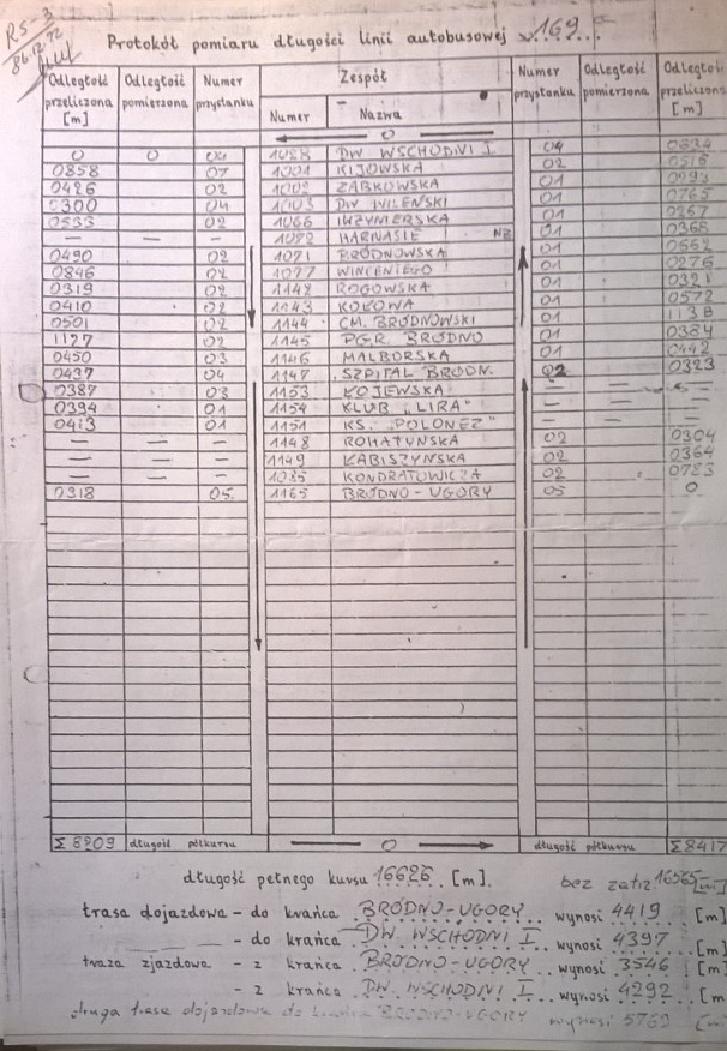 RS-3
86.12.22
Protokół pomiaru długości linii autobusowej 169
Odległość przeliczona [m] Odległość pomierzona Numer przystanku Zespół Numer Nazwa Numer przystanku Odległość pomierzona Odległość przeliczona [m]
0
0 0 04 1028 DW WSCHODNI I 04 0634
0858 07 1001 KIJOWSKA 02 0516
0426 02 1002 ZĄBKOWSKA 01 0293
0300 04 1003 DW WILEŃSKI 01 0765
0533 02 1066 INŻYNIERSKA 01 0267
— — — 1092 HARNASIE NŻ 01 0368
0490 02 1071 BRÓDNOWSKA 01 0552
0846 02 1077 WINCENTEGO 01 0276
0319 02 1142 ROGOWSKA 01 0321
0410 02 1143 KOŁOWA 01 0572
0501 02 1144 CM. BRÓDNOWSKI 01 1138
1127 02 1145 PGR. BRÓDNO 01 0384
0450 03 1146 MALBORSKA 01 0442
0437 04 1147 SZPITAL BRÓDN. 02 0323
0387 03 1153 ŁOJEWSKA — — —
0394 01 1154 KLUB „LIRA" — — —
0413 01 1151 KS. „POLONEZ" — — —
— — — 1148 ROHATYŃSKA 02 0304
— — — 1149 ŁABISZYŃSKA 02 0364
— — — 1035 KONDRATOWICZA 02 0783
0318 05 1165 BRÓDNO-UGORY 05 0
Σ 8209 długość półkursu 0 długość półkursu Σ8417
długość pełnego kursu 16626 [m]. bez zatrz 16565 [m]
trasa dojazdowa - do krańca BRÓDNO-UGORY wynosi 4419 [m]
- do krańca DW. WSCHODNI I wynosi 4397 [m]
trasa zjazdowa - z krańca BRÓDNO-UGORY wynosi 3546 [m]
- z krańca DW. WSCHODNI I wynosi 4292 [m
druga trasa dojazdowa do krańca BRÓDNO-UGORY wynosi 5769 [m]